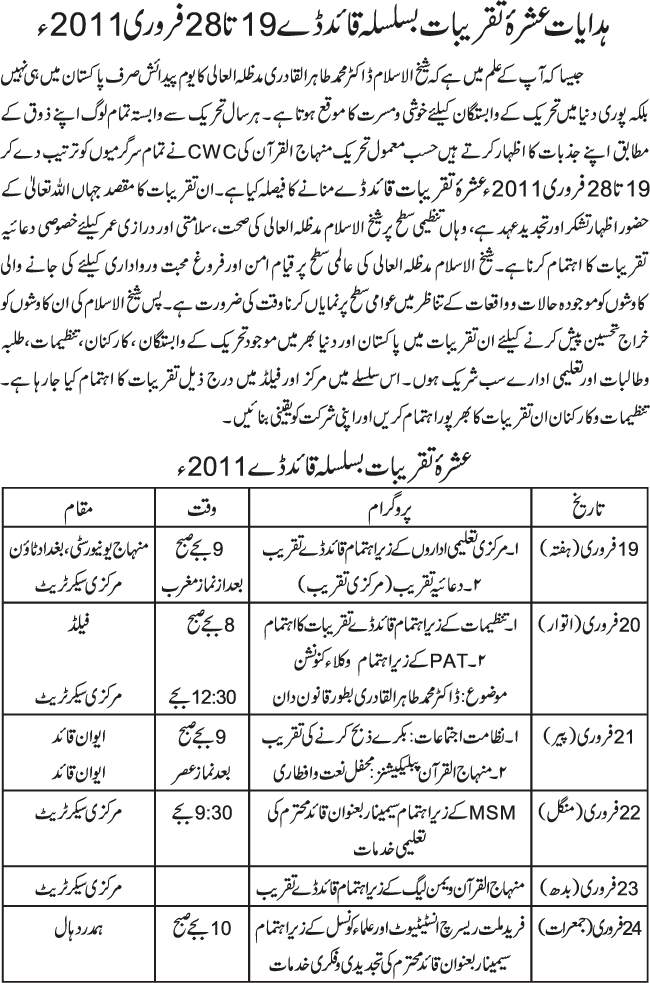 ہدایات عشرۂ تقریبات بسلسلہ قائد ڈے 19 تا 28 فروری 2011ء
جیسا کہ آپ کے علم میں ہے کہ شیخ الاسلام ڈاکٹر محمد طاہر القادری مدظلہ العالی کا یوم پیدائش صرف پاکستان میں ہی نہیں
بلکہ پوری دنیا میں تحریک کے وابستگان کیلئے خوشی و مسرت کا موقع ہوتا ہے۔ ہر سال تحریک سے وابستہ تمام لوگ اپنے ذوق کے
مطابق اپنے جذبات کا اظہار کرتے ہیں حسب معمول تحریک منہاج القرآن کی CWC نے تمام سرگرمیوں کو ترتیب دے کر
19 تا 28 فروری 2011ء عشرۂ تقریبات قائد ڈے منانے کا فیصلہ کیا ہے۔ ان تقریبات کا مقصد جہاں اللہ تعالیٰ کے
حضور اظہار تشکر اور تجدید عہد ہے، وہاں تنظیمی سطح پر شیخ الاسلام مدظلہ العالی کی صحت، سلامتی اور درازی عمر کیلئے خصوصی دعائیہ
تقریبات کا اہتمام کرنا ہے۔ شیخ الاسلام مدظلہ العالی کی عالمی سطح پر قیام امن اور فروغ محبت ورواداری کیلئے کی جانے والی
کاوشوں کو موجودہ حالات و واقعات کے تناظر میں عوامی سطح پر نمایاں کرنا وقت کی ضرورت ہے۔ پس شیخ الاسلام کی ان کاوشوں کو
خراج تحسین پیش کرنے کیلئے ان تقریبات میں پاکستان اور دنیا بھر میں موجود تحریک کے وابستگان، کارکنان، تنظیمات، طلبہ
وطالبات اور تعلیمی ادارے سب شریک ہوں۔ اس سلسلے میں مرکز اور فیلڈ میں درج ذیل تقریبات کا اہتمام کیا جا رہا ہے۔
تنظیمات و کارکنان ان تقریبات کا بھرپور اہتمام کریں اور اپنی شرکت کو یقینی بنائیں۔
عشرۂ تقریبات بسلسلہ قائد ڈے 2011ء
تاریخ پروگرام وقت مقام
19 فروری (ہفتہ) ۱۔ مرکزی تعلیمی اداروں کے زیر اہتمام قائد ڈے تقریب 9 بجے صبح منہاج یونیورسٹی، بغداد ٹاؤن
۲۔ دعائیہ تقریب (مرکزی تقریب) بعد از نماز مغرب مرکزی سیکرٹریٹ
20 فروری (اتوار) ۱۔ تنظیمات کے زیر اہتمام قائد ڈے تقریبات کا اہتمام 8 بجے صبح فیلڈ
۲۔ PAT کے زیر اہتمام وکلاء کنونشن
موضوع: ڈاکٹر محمد طاہر القادری بطور قانون دان 12:30 بجے مرکزی سیکرٹریٹ
21 فروری (پیر) ۱۔ نظامت اجتماعات: بکرے ذبح کرنے کی تقریب 9 بجے صبح ایوان قائد
۲۔ منہاج القرآن پبلیکیشنز: محفل نعت و افطاری بعد نماز عصر ایوان قائد
22 فروری (منگل) MSM کے زیر اہتمام سیمینار بعنوان قائد محترم کی 9:30 بجے مرکزی سیکرٹریٹ
تعلیمی خدمات
23 فروری (بدھ) منہاج القرآن ویمن لیگ کے زیر اہتمام قائد ڈے تقریب مرکزی سیکرٹریٹ
24 فروری (جمعرات) فرید ملت ریسرچ انسٹیٹیوٹ اور علماء کونسل کے زیر اہتمام 10 بجے صبح ہمدرد ہال
سیمینار بعنوان قائد محترم کی تجدیدی و فکری خدمات